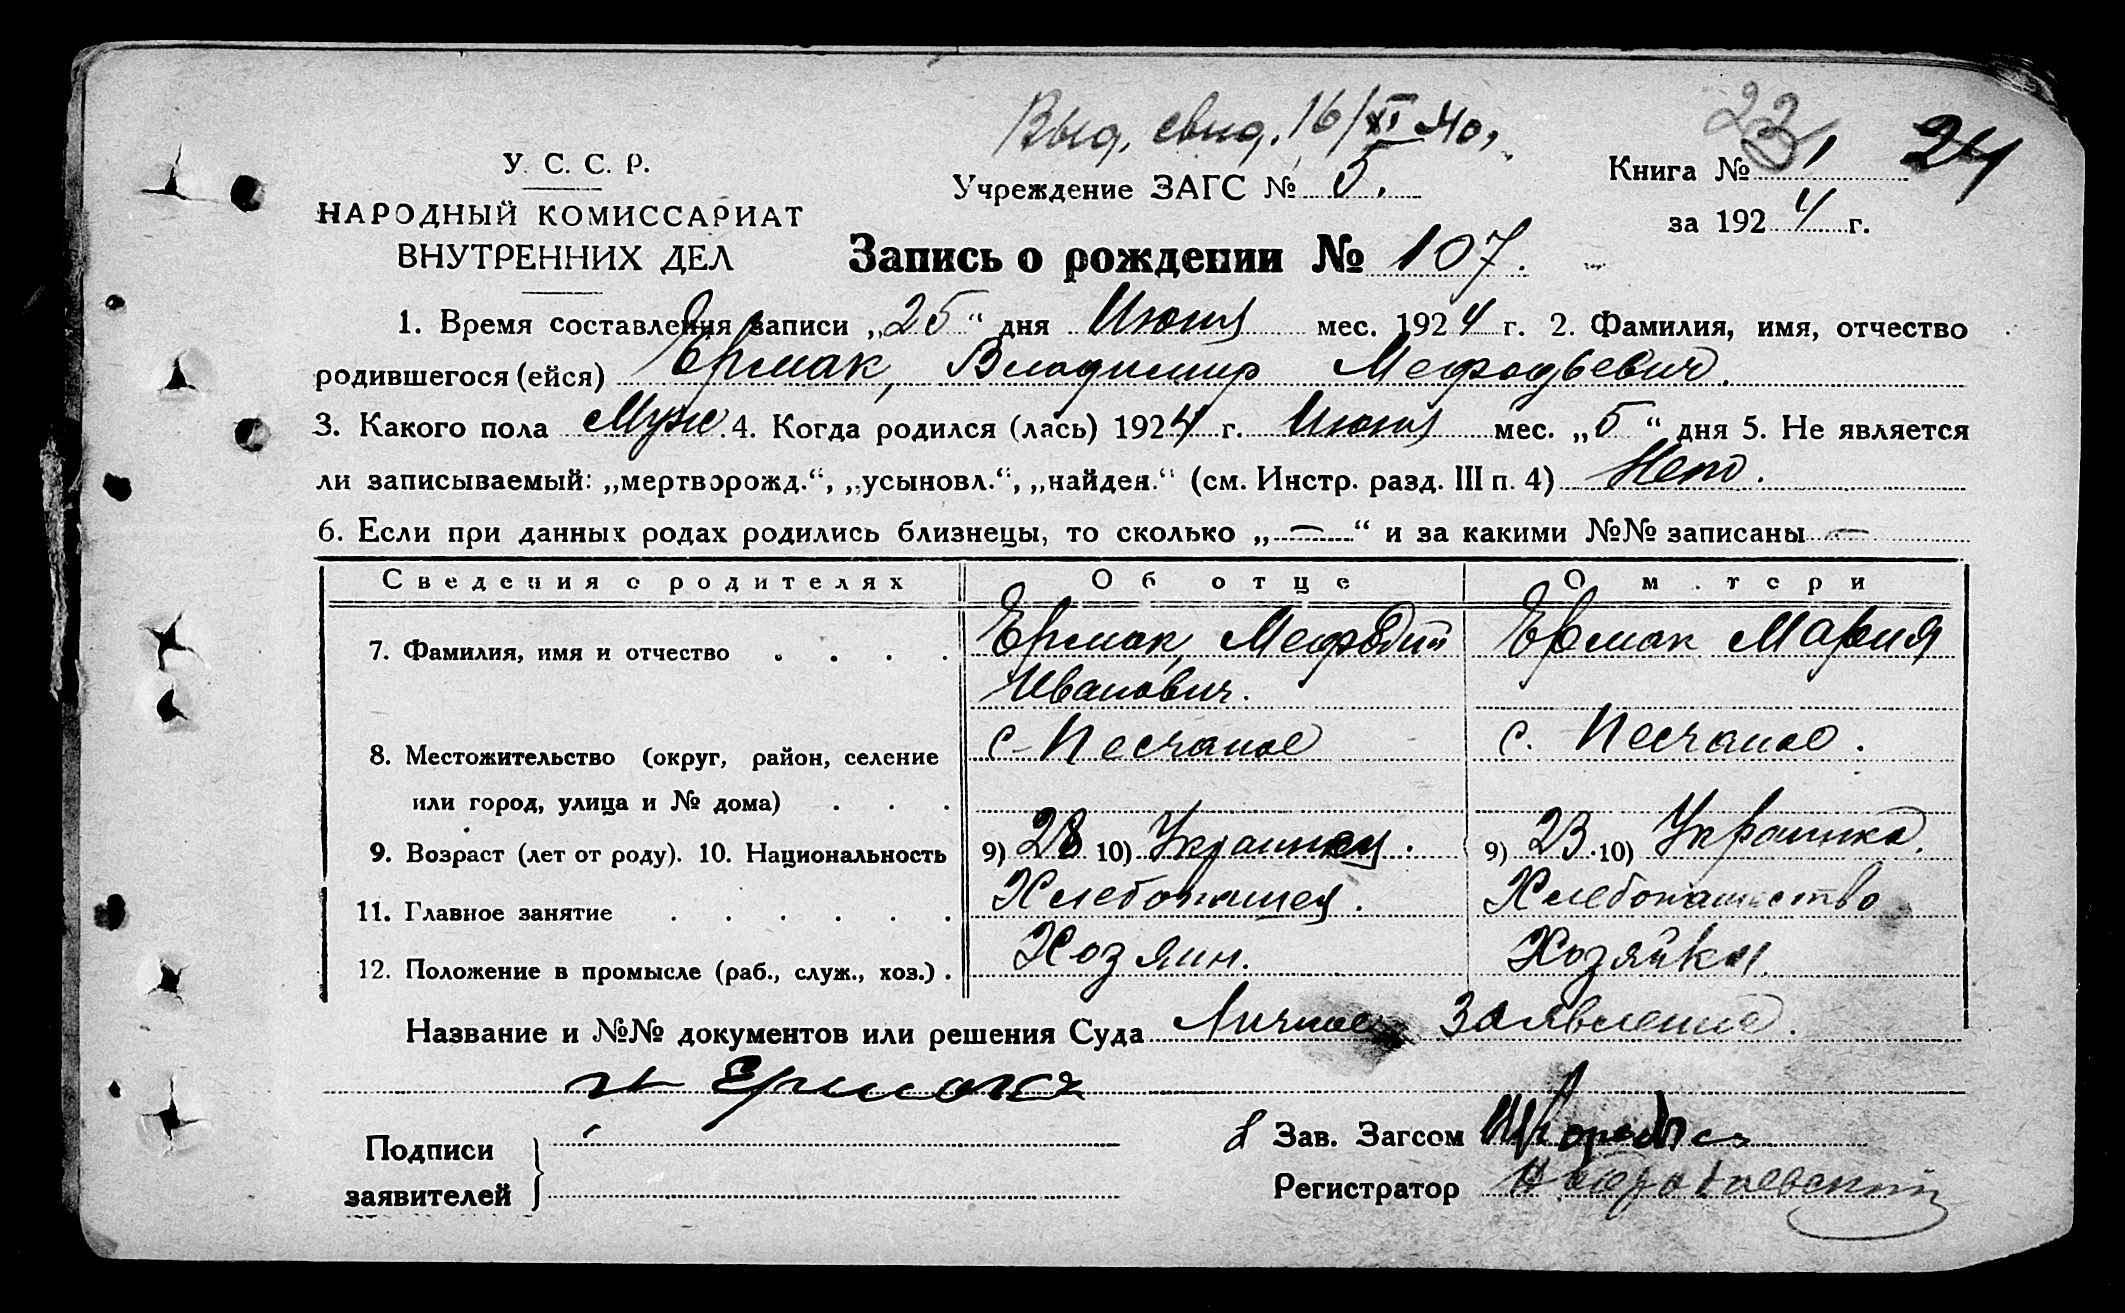 Выд. свид. 16/XI 40.
23 24
У. С. С. Р.
НАРОДНЫЙ КОМИССАРИАТ
ВНУТРЕННИХ ДЕЛ
Учреждение ЗАГС № 5.
Книга № 1
за 1924 г.
Запись о рождении № 107.
1. Время составления записи „25“ дня Июня мес. 1924 г. 2. Фамилия, имя, отчество
родившегося (ейся) Ермак, Владимир Мефодьевич.
3. Какого пола Муж. 4. Когда родился (лась) 1924 г. Июня мес. „5“ дня 5. Не является
ли записываемый: „мертворожд.“, „усыновл.“, „найден.“ (см. Инстр. разд. III п. 4) Нет.
6. Если при данных родах родились близнецы, то сколько „—“ и за какими №№ записаны —
Сведения о родителях Об отце О м.тери
7. Фамилия, имя и отчество . . . . Ермак, Мефодий Ермак Мария
Иванович.
8. Местожительство (округ, район, селение с-Песчаное с. Песчаное.
или город, улица и № дома) . . .
9. Возраст (лет от роду). 10. Национальность 9) 28 10) Украинец. 9) 23. 10) Украинка.
11. Главное занятие . . . . . . Хлебопашец. Хлебопашество
12. Положение в промысле (раб., служ., хоз.) . Хозяин. Хозяйка
Название и №№ документов или решения Суда Личное Заявление.
Ермака
Подписи
заявителей
Зав. Загсом
Регистратор